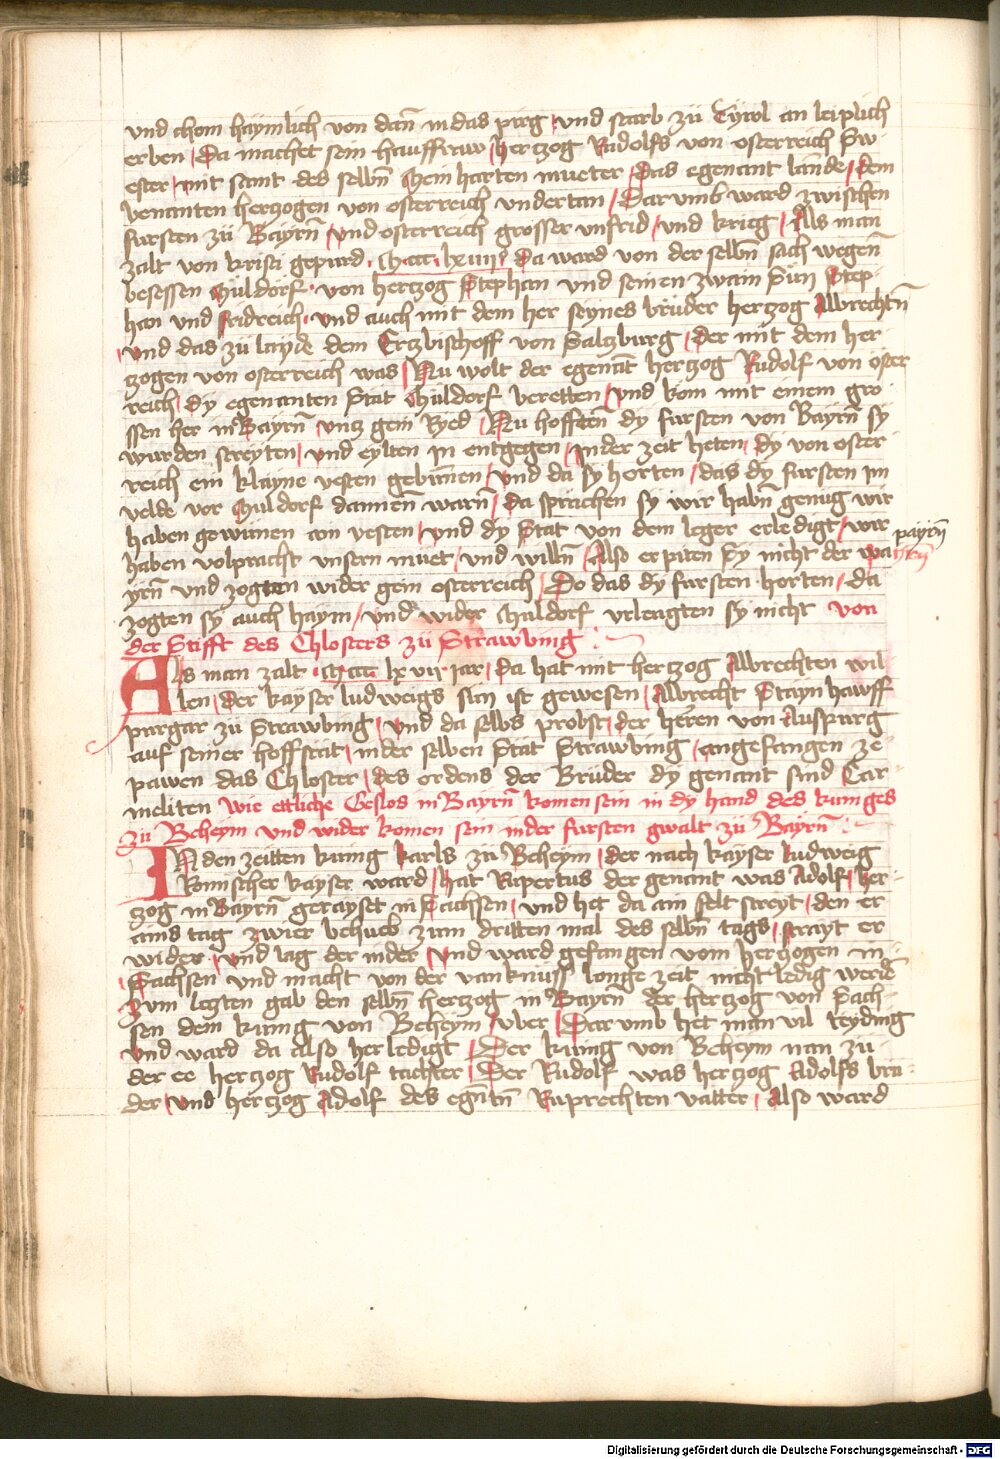 vnd chom haymlich von dan̄ in das pirg vnd starb zü Tyrol an leiplich
erben Da machet sein hauffraw hertzog Rudolfs von osterreich Sw
ester mit samt des selbn̄ Mein harten mueter Das egenant lande dem
benanten herzogen von osterreich vndertan Dar vmb ward zwischen
fursten zü Bayrn̄ vnd osterreich grosser vnfrid vnd krieg Als man
zalt von kristi gepurd Mccc lxiiii Da ward von der selbn̄ sach wegen̄
besessen Müldorf von hertzog Stephan vnd seinen zwain Sün Step
han vnd fridreich vnd auch mit dem her seynes brüder hertzog Albrechtn̄
vnd das zü layde dem Ertzbischoff von Saltzburg der mit dem her
zogen von osterreich was Nu wolt der egenāt hertzog Rudolf von oster
reich Dy egenanten Stat Müldorf beretten vnd kom mit einem gro
ssen her in Bayrn̄ vntz gein Ryed Nu hofften dy fursten von Bayrn̄ sy
wurden streyten vnd eylten in entgegen In der zeit heten dy von oster
reich ein klayne vesten gebunnen vnd da sy horten das dy fursten im
velde vor Muldorf dannen warn̄ Da sprachen sy wir habn̄ genug wir
haben gewunen ain vesten vnd dy Stat von dem leger erledigt wir
haben volpracht vnsern müet vnd willn̄ Also erpiten Sy nicht der pa payrn̄
yrn̄ vnd zogten wider gein osterreich Do das dy fursten horten da
zogten sy auch haym vnd wider Muldorf vrleugten sy nicht von
der Stifft des Chlosters zü Strawbing
Als man zalt Mccc lxvii jar da hat mit hertzog Albrechten wil
len der kayser ludweigs sun ist gewesen Albrecht Staynhawff
purgar zü Strawbing vnd da selbs probst der herren von Auspurg
auf seiner hoffstat in der selben Stat Strawbing angefangen ze
pawen das Chloster des ordens der Brüder dy genant sind Car
meliten wie ettliche Geslos in Bayrn̄ komen sein in dy hand des kuniges
zü Beheym vnd wider komen sein in der fursten gwalt zü Bayrn̄
In den zeitten kunig karls zü Beheym der nach kayser ludweig
Romischer kayser ward hat Rupertus der genant was Adolf her
zog in Bayrn̄ gerayset in Sachsen vnd het da ain felt streyt den er
ains tag zwier behueb zum dritten mal des selbn̄ tags strayt er
wider vnd lag der nider vnd ward gefangen vom hertzogen in
Sachsen vnd macht von der vanknüss longe zeit nicht ledig werdē
Zum letzten gab den selbn̄ hertzog in Bayrn̄ Der hertzog von Sach
sen dem kunig von Beheym vber Dar vmb het man vil teyding
vnd ward da also her ledigt Der kunig von Beheym nan zu
der ee hertzog Rudolf tachter Der Rudolf was hertzog Adolfs bru
der vnd hertzog Adolf des egn̄tn̄ Ruprechten vatter Also ward
Digitalisierung gefördert durch die Deutsche Forschungsgemeinschaft - DFG